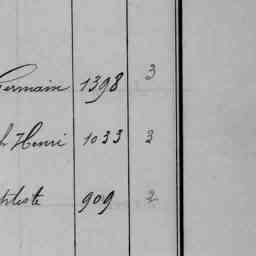 Germain 1398 3
h Henri 1033 3
ptiste 909 2